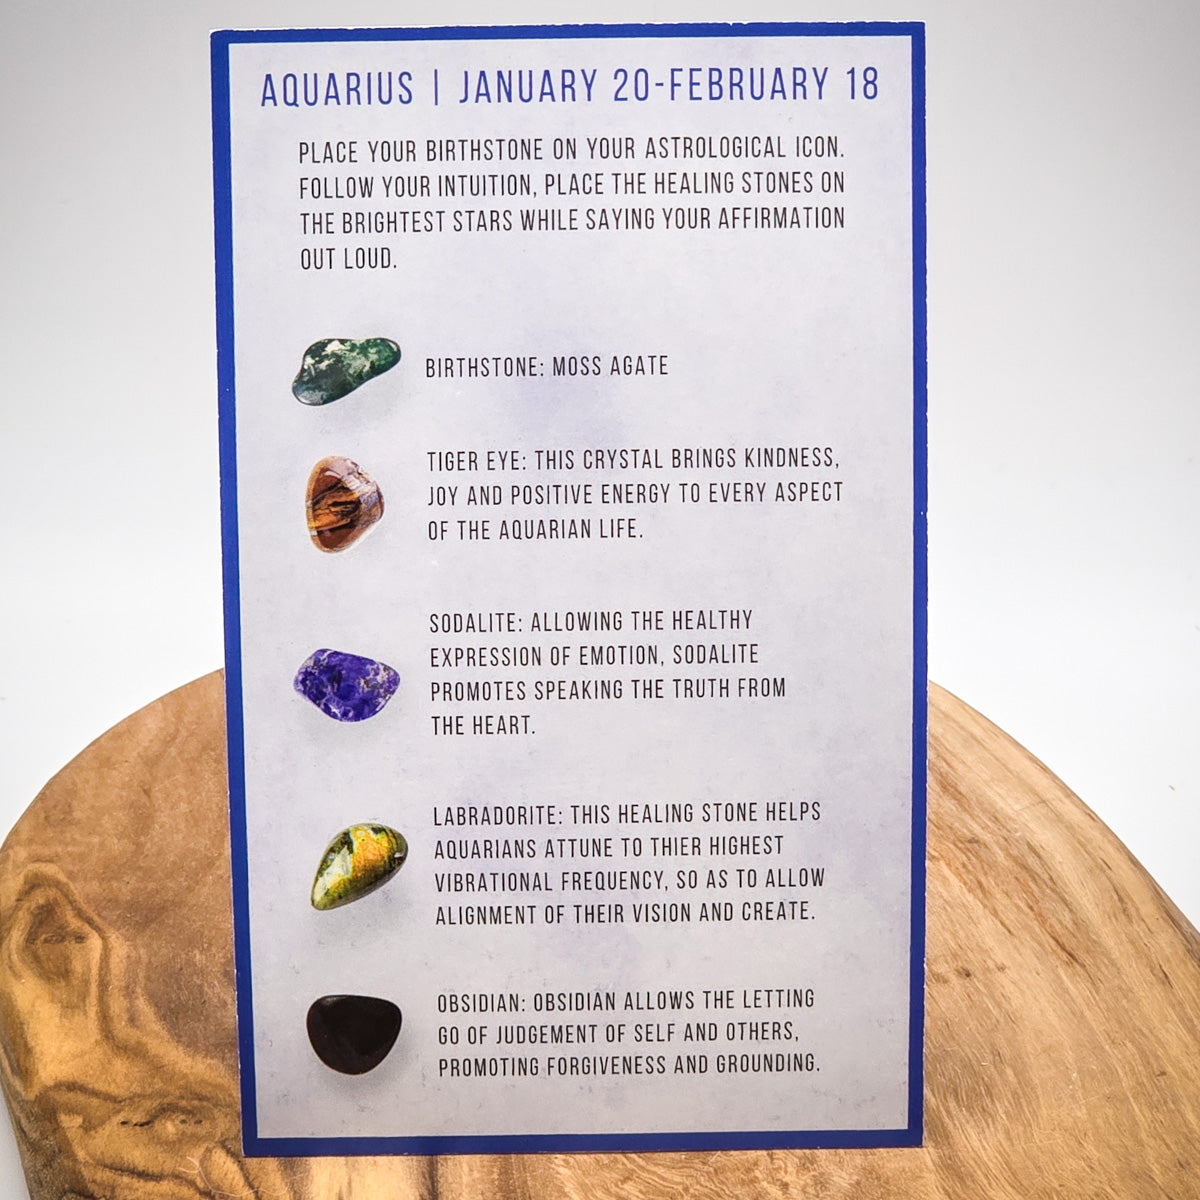 AQUARIUS | JANUARY 20-FEBRUARY 18
PLACE YOUR BIRTHSTONE ON YOUR ASTROLOGICAL ICON.
FOLLOW YOUR INTUITION, PLACE THE HEALING STONES ON
THE BRIGHTEST STARS WHILE SAYING YOUR AFFIRMATION
OUT LOUD.
BIRTHSTONE: MOSS AGATE
TIGER EYE: THIS CRYSTAL BRINGS KINDNESS,
JOY AND POSITIVE ENERGY TO EVERY ASPECT
OF THE AQUARIAN LIFE.
SODALITE: ALLOWING THE HEALTHY
EXPRESSION OF EMOTION, SODALITE
PROMOTES SPEAKING THE TRUTH FROM
THE HEART.
LABRADORITE: THIS HEALING STONE HELPS
AQUARIANS ATTUNE TO THIER HIGHEST
VIBRATIONAL FREQUENCY, SO AS TO ALLOW
ALIGNMENT OF THEIR VISION AND CREATE.
OBSIDIAN: OBSIDIAN ALLOWS THE LETTING
GO OF JUDGEMENT OF SELF AND OTHERS,
PROMOTING FORGIVENESS AND GROUNDING.